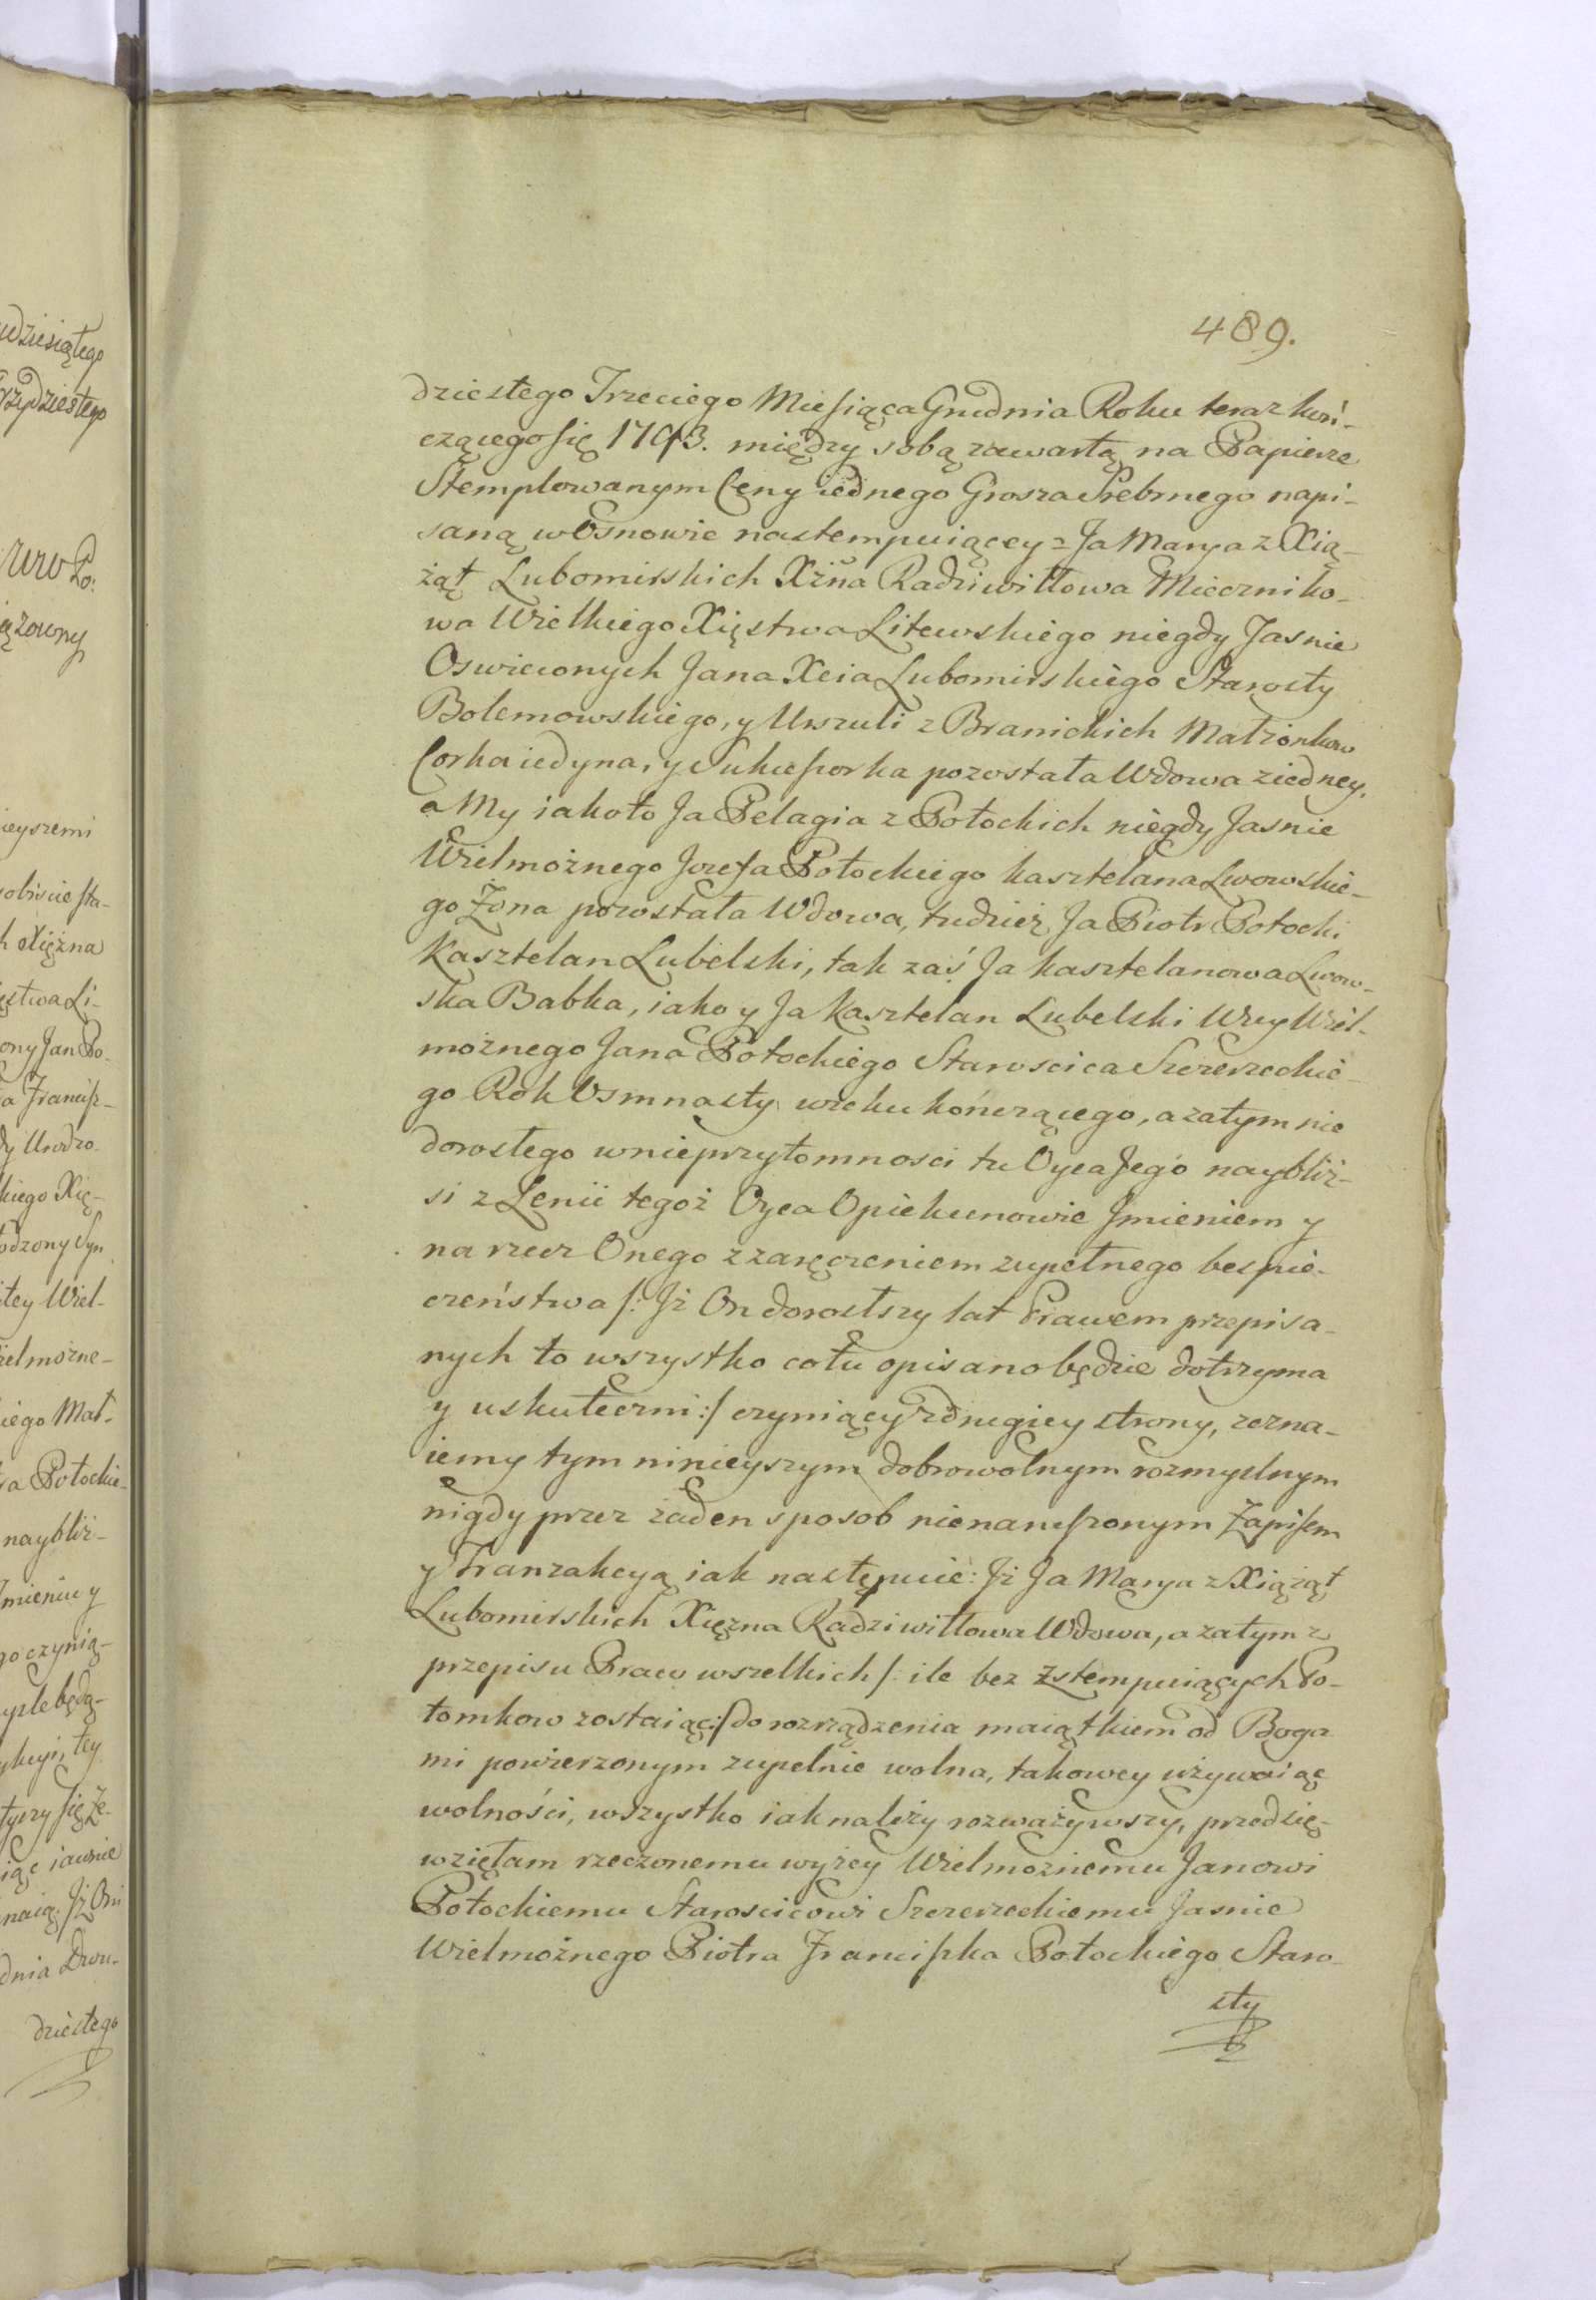 489.
dziestego Trzeciego Miesiąca Grudnia Roku teraz koń-
czącego się 1793. między sobą zawartą na Papierze
Stemplowanym Ceny iednego Grosza Srebrnego napi-
saną w Osnowie nastempuiącey = Ja Marya z Xią-
żąt Lubomirskich Xżna Radziwiłłowa Mieczniko-
wa Wielkiego Xięstwa Litewskiego niegdy Jasnie
Oswieconych Jana Xcia Lubomirskiego Starosty
Bolemowskiego, y Urszuli z Branickich Małżonkow
Corka iedyna, y Sukcessorka pozostała Wdowa z iedney,
a My iakoto Ja Pelagia z Potockich niegdy Jasnie
Wielmożnego Jozefa Potockiego kasztelana Lwowskie-
go Żona pozostała Wdowa, tudzież Ja Piotr Potocki
Kasztelan Lubelski, tak zaś Ja kasztelanowa Lwow-
ska Babka, iako y Ja Kasztelan Lubelski Wuy Wiel-
możnego Jana Potockiego Staroscica Szczerzeckie-
go Rok Osmnasty wieku kończącego, a zatym nie
dorosłego w nieprzytomnosci tu Oyca Jego naybliż-
si z Lenii tegoż Oyca Opiekunowie Jmieniem y
na rzecz Onego z zaręczeniem zupełnego bespie-
czeństwa /: Jż On dorosłszy lat Prawem przepisa-
nych to wszystko co tu opisano będzie dotrzyma
y uskuteczni :/ czyniący z drugiey strony, zezna-
iemy tym ninieyszym dobrowolnym rozmyslnym
nigdy przez żaden sposob nienaruszonym Zapisem
y Tranzakcyą iak następuie: Jż Ja Marya z Xiążąt
Lubomirskich Xiężna Radziwiłłowa Wdowa, a zatym z
przepisu Praw wszelkich /: ile bez Zstempuiących Po-
tomkow zostaiąc :/ do rozrządzenia maiątkiem od Boga
mi powierzonym zupełnie wolna, takowey używaiąc
wolności, wszystko iak należy rozważywszy, przedsię-
wzięłam rzeczonemu wyżey Wielmożnemu Janowi
Potockiemu Staroscicowi Szczerzeckiemu Jasnie
Wielmożnego Piotra Franciszka Potockiego Staro-
sty